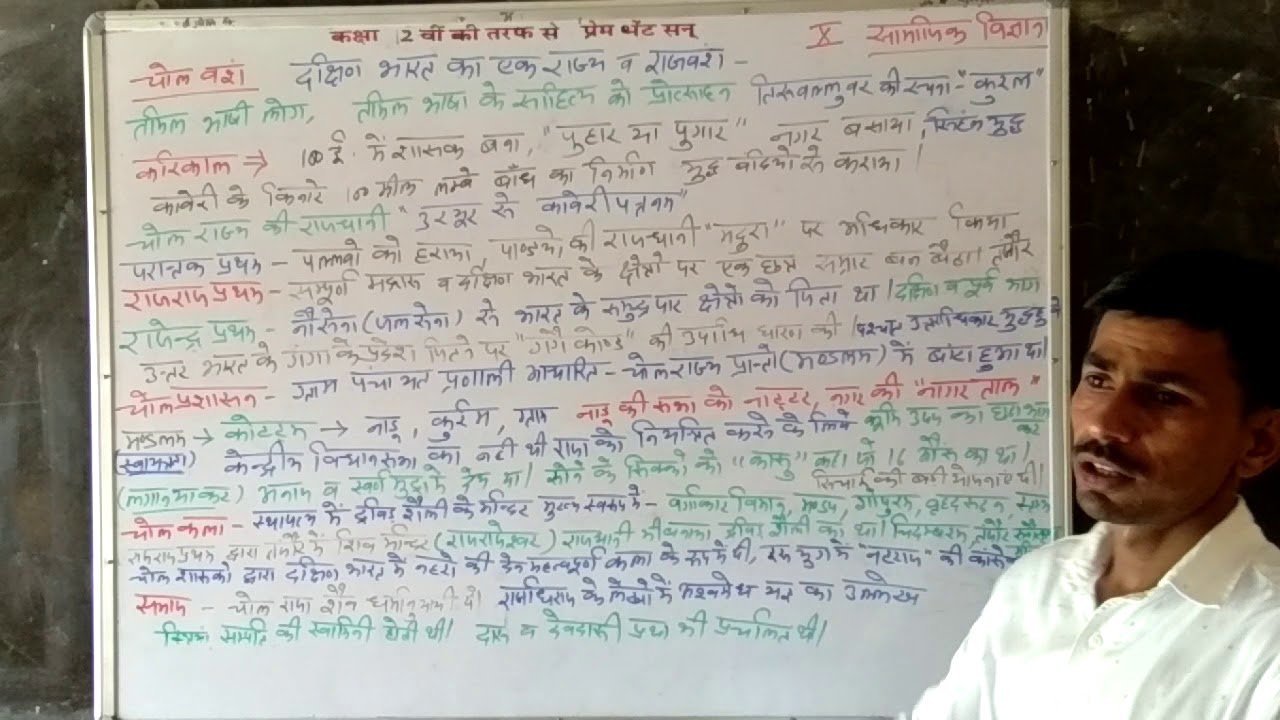 कक्षा 12 वीं की तरफ से प्रेम भेंट सन्
X सामाजिक विज्ञान
चोल वंश दक्षिण भारत का एक राज्य व राजवंश -
तमिल भाषी लोग, तमिल भाषा के साहित्य को प्रोत्साहन तिरूवल्लुवर की रचना - "कुरल"
करिकाल → 190 ई. में शासक बना, "पुहार या पुगार" नगर बसाया,
कावेरी के किनारे 100 मील लम्बे बाँध का निर्माण युद्ध बंदियो से कराया।
चोल राज्य की राजधानी "उरयूर से कावेरीपत्तनम"
परान्तक प्रथम - पल्लवो को हराया, पाण्डयो की राजधानी "मदुरा" पर अधिकार किया
राजराज प्रथम - सम्पूर्ण मद्रास व दक्षिण भारत के क्षेत्रो पर एक छत्र सम्राट बन बैठा। तंजौर
राजेन्द्र प्रथम - नौसेना (जलसेना) से भारत के समुद्रपार क्षेत्रो को जिता था। दक्षिण व पूर्व भाग
उत्तर भारत के गंगा के प्रदेश जितने पर "गंगै कोण्ड" की उपाधि धारण की। पश्चात उत्तराधिकार युद्ध हु
चोल प्रशासन - ग्राम पंचायत प्रणाली आधारित - चोल राज्य प्रान्तो (मण्डलम) में बांटा हुआ था।
मण्डलम → कोट्टम → नाडू, कुर्रम, ग्राम नाडू की सभा को नाट्टर, नगर की "नागर ताल"
(स्वायत्ता) केन्द्रीय विधानसभा का नही थी राजा को नियंत्रित करने के लिये भूमि उपज का छठा भाग कर
(लगान या कर) अनाज व स्वर्ण मुद्रा में देय था। सोने के सिक्को को "कासु" कहा जो 16 औंस का था। सिचाई की बडी योजनाएं थी।
चोल कला - स्थापत्य में द्रविड शैली के मन्दिर मुख्य स्वरूप में - वर्गाकार विमान, मण्डप, गोपुरम,
राजराज प्रथम द्वारा तंजौर में शिव मन्दिर (राजराजेश्वर) राजधानी में बनाया द्रविड शैली का था। चिदम्बरम, तंजौर
चोल शासको द्वारा दक्षिण भारत में नहरो की देन महत्वपूर्ण कला के रूप में दी, इस युग में "नटराज" की कांसे
समाज - चोल राजा शैव धर्मानुयायी थे। राजाधिराज के लेखो में अश्वमेध यज्ञ का उल्लेख
स्त्रियां सम्पति की स्वामिनी होती थी। दास व देवदासी प्रथा भी प्रचलित थी।